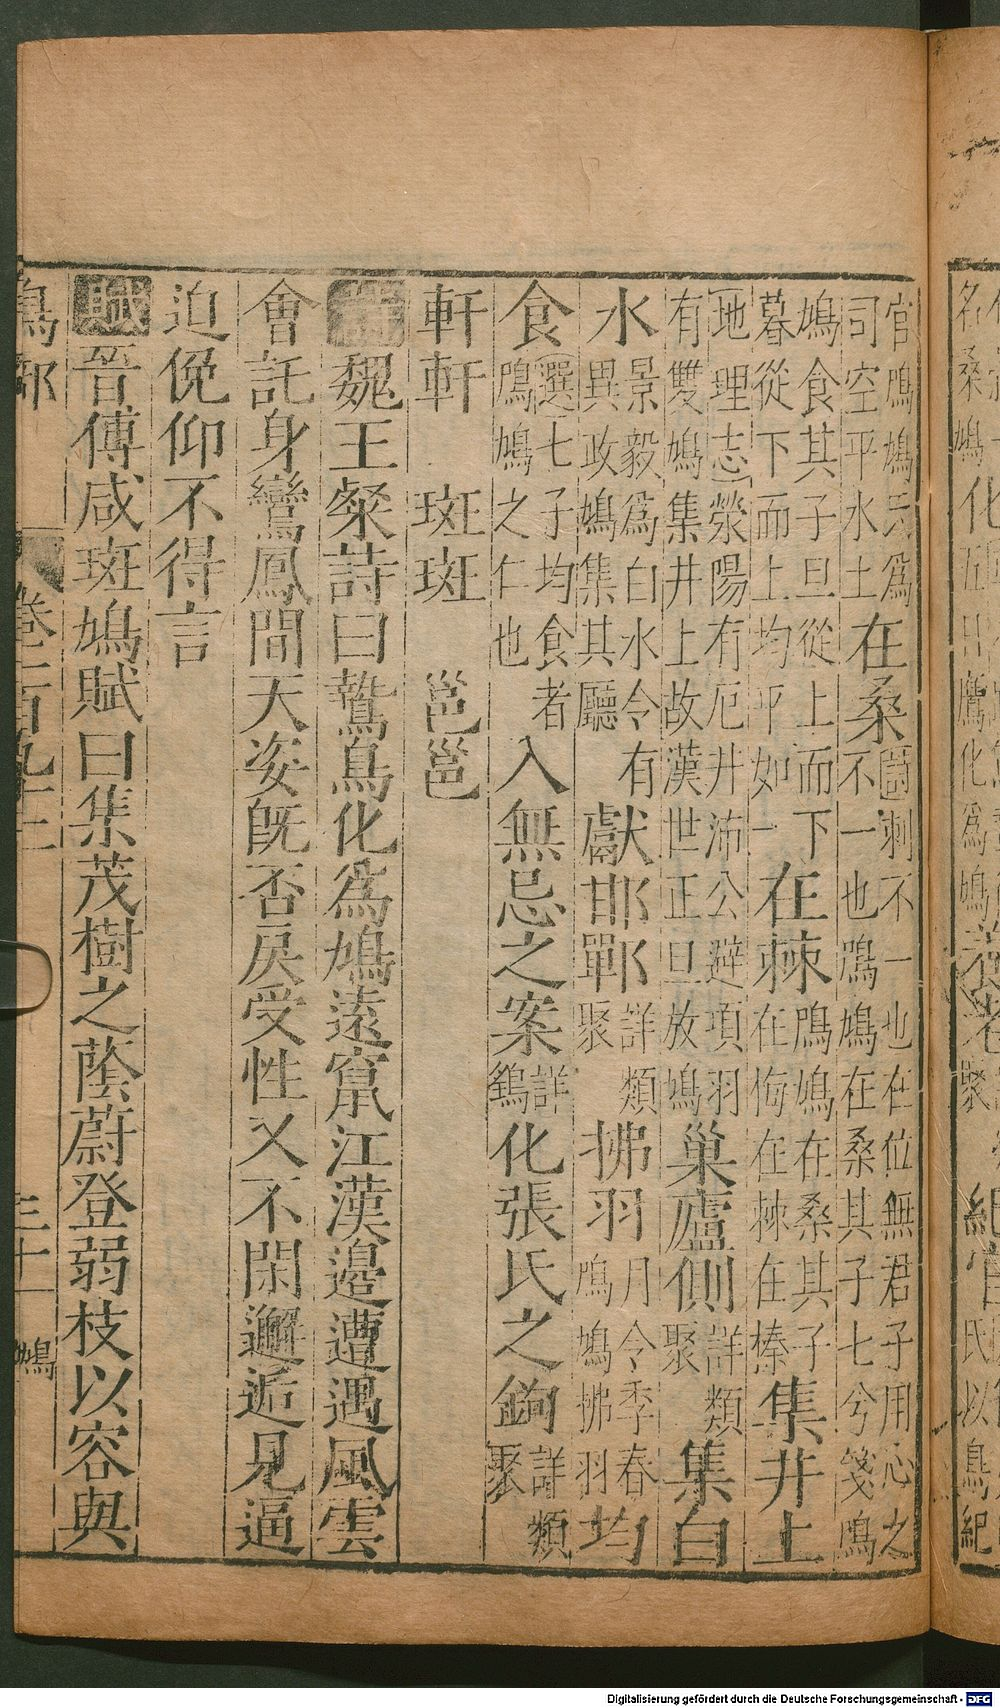 官鳲鳩氏爲
司空平水土
在桑
詩刺不一也在位無君子用心之
不一也鳲鳩在桑其子七兮箋鳲
鳩食其子旦從上而下
暮從下而上均平如一
在棘
鳲鳩在桑其子
在梅在棘在榛
集井上
地理志滎陽有厄井沛公避項羽
有雙鳩集井上故漢世正旦放鳩
巢廬側
詳類
聚
集白
水
景毅爲白水令有
異政鳩集其廳
獻邯鄲
詳類
聚
拂羽
月令季春
鳴鳩拂羽
均
食
選七子均食者
鳲鳩之仁也
入無忌之案
詳
鷂
化張氏之鉤
詳類
聚
軒軒 斑斑 邕邕
詩魏王粲詩曰鷙鳥化爲鳩遠竄江漢邊遭遇風雲
會託身鸞鳳間天姿既否戾受性又不閑邂逅見逼
迫俛仰不得言
賦晉傅咸斑鳩賦曰集茂樹之蔭蔚登弱枝以容與
鳥部 卷二百九十三 三十一 鳩
Digitalisierung gefördert durch die Deutsche Forschungsgemeinschaft - DFG